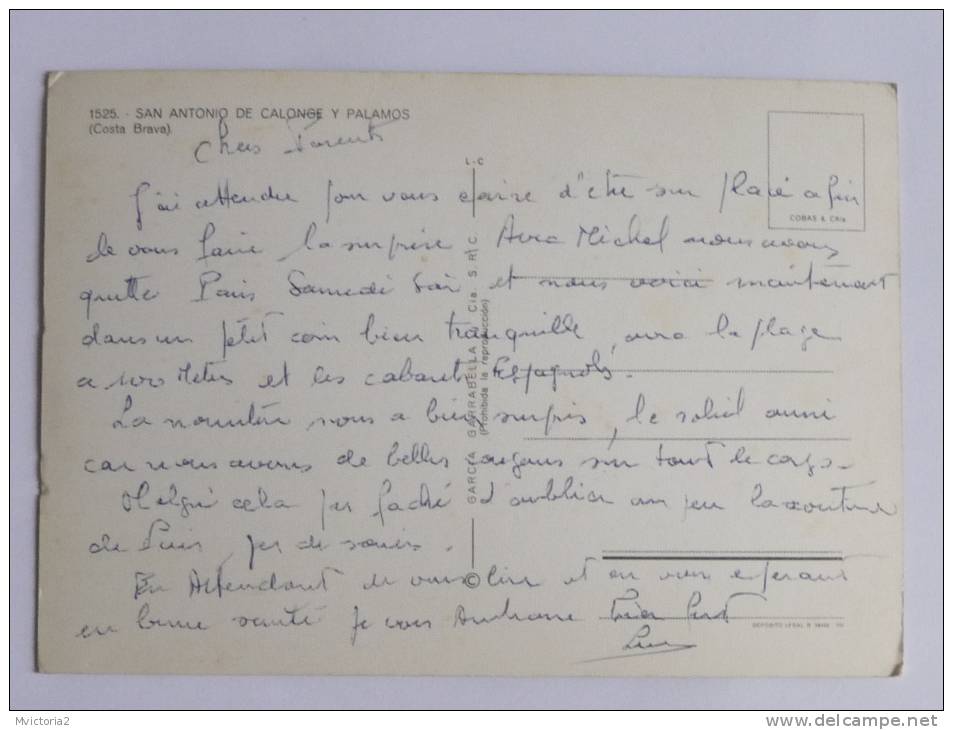 1525. - SAN ANTONIO DE CALONGE Y PALAMOS
(Costa Brava)
Chers Parents
L - C
J'ai attendu pour vous écrire d'être sur place afin
COBAS & CRIA
de vous faire la surprise Avec Michel nous avons
quitté Paris Samedi Soir et nous voici maintenant
dans un petit coin bien tranquille, avec la plage
a 100 Mètres et les cabarets Espagnols.
GARCIA GARRABELLA Y Cia. S. R. C.
(Prohibida la reproducción)
La nourriture nous a bien surpris, le soleil aussi
car nous avons de belles rougeurs sur tout le corps.
Malgré cela pas faché d'oublier un peu la routine
de Paris, pas de soucis.
En Attendant de vous lire et en vous espérant
en bonne santé je vous
DEPOSITO LEGAL B.
©
Mvictoria2
www.delcampe.net